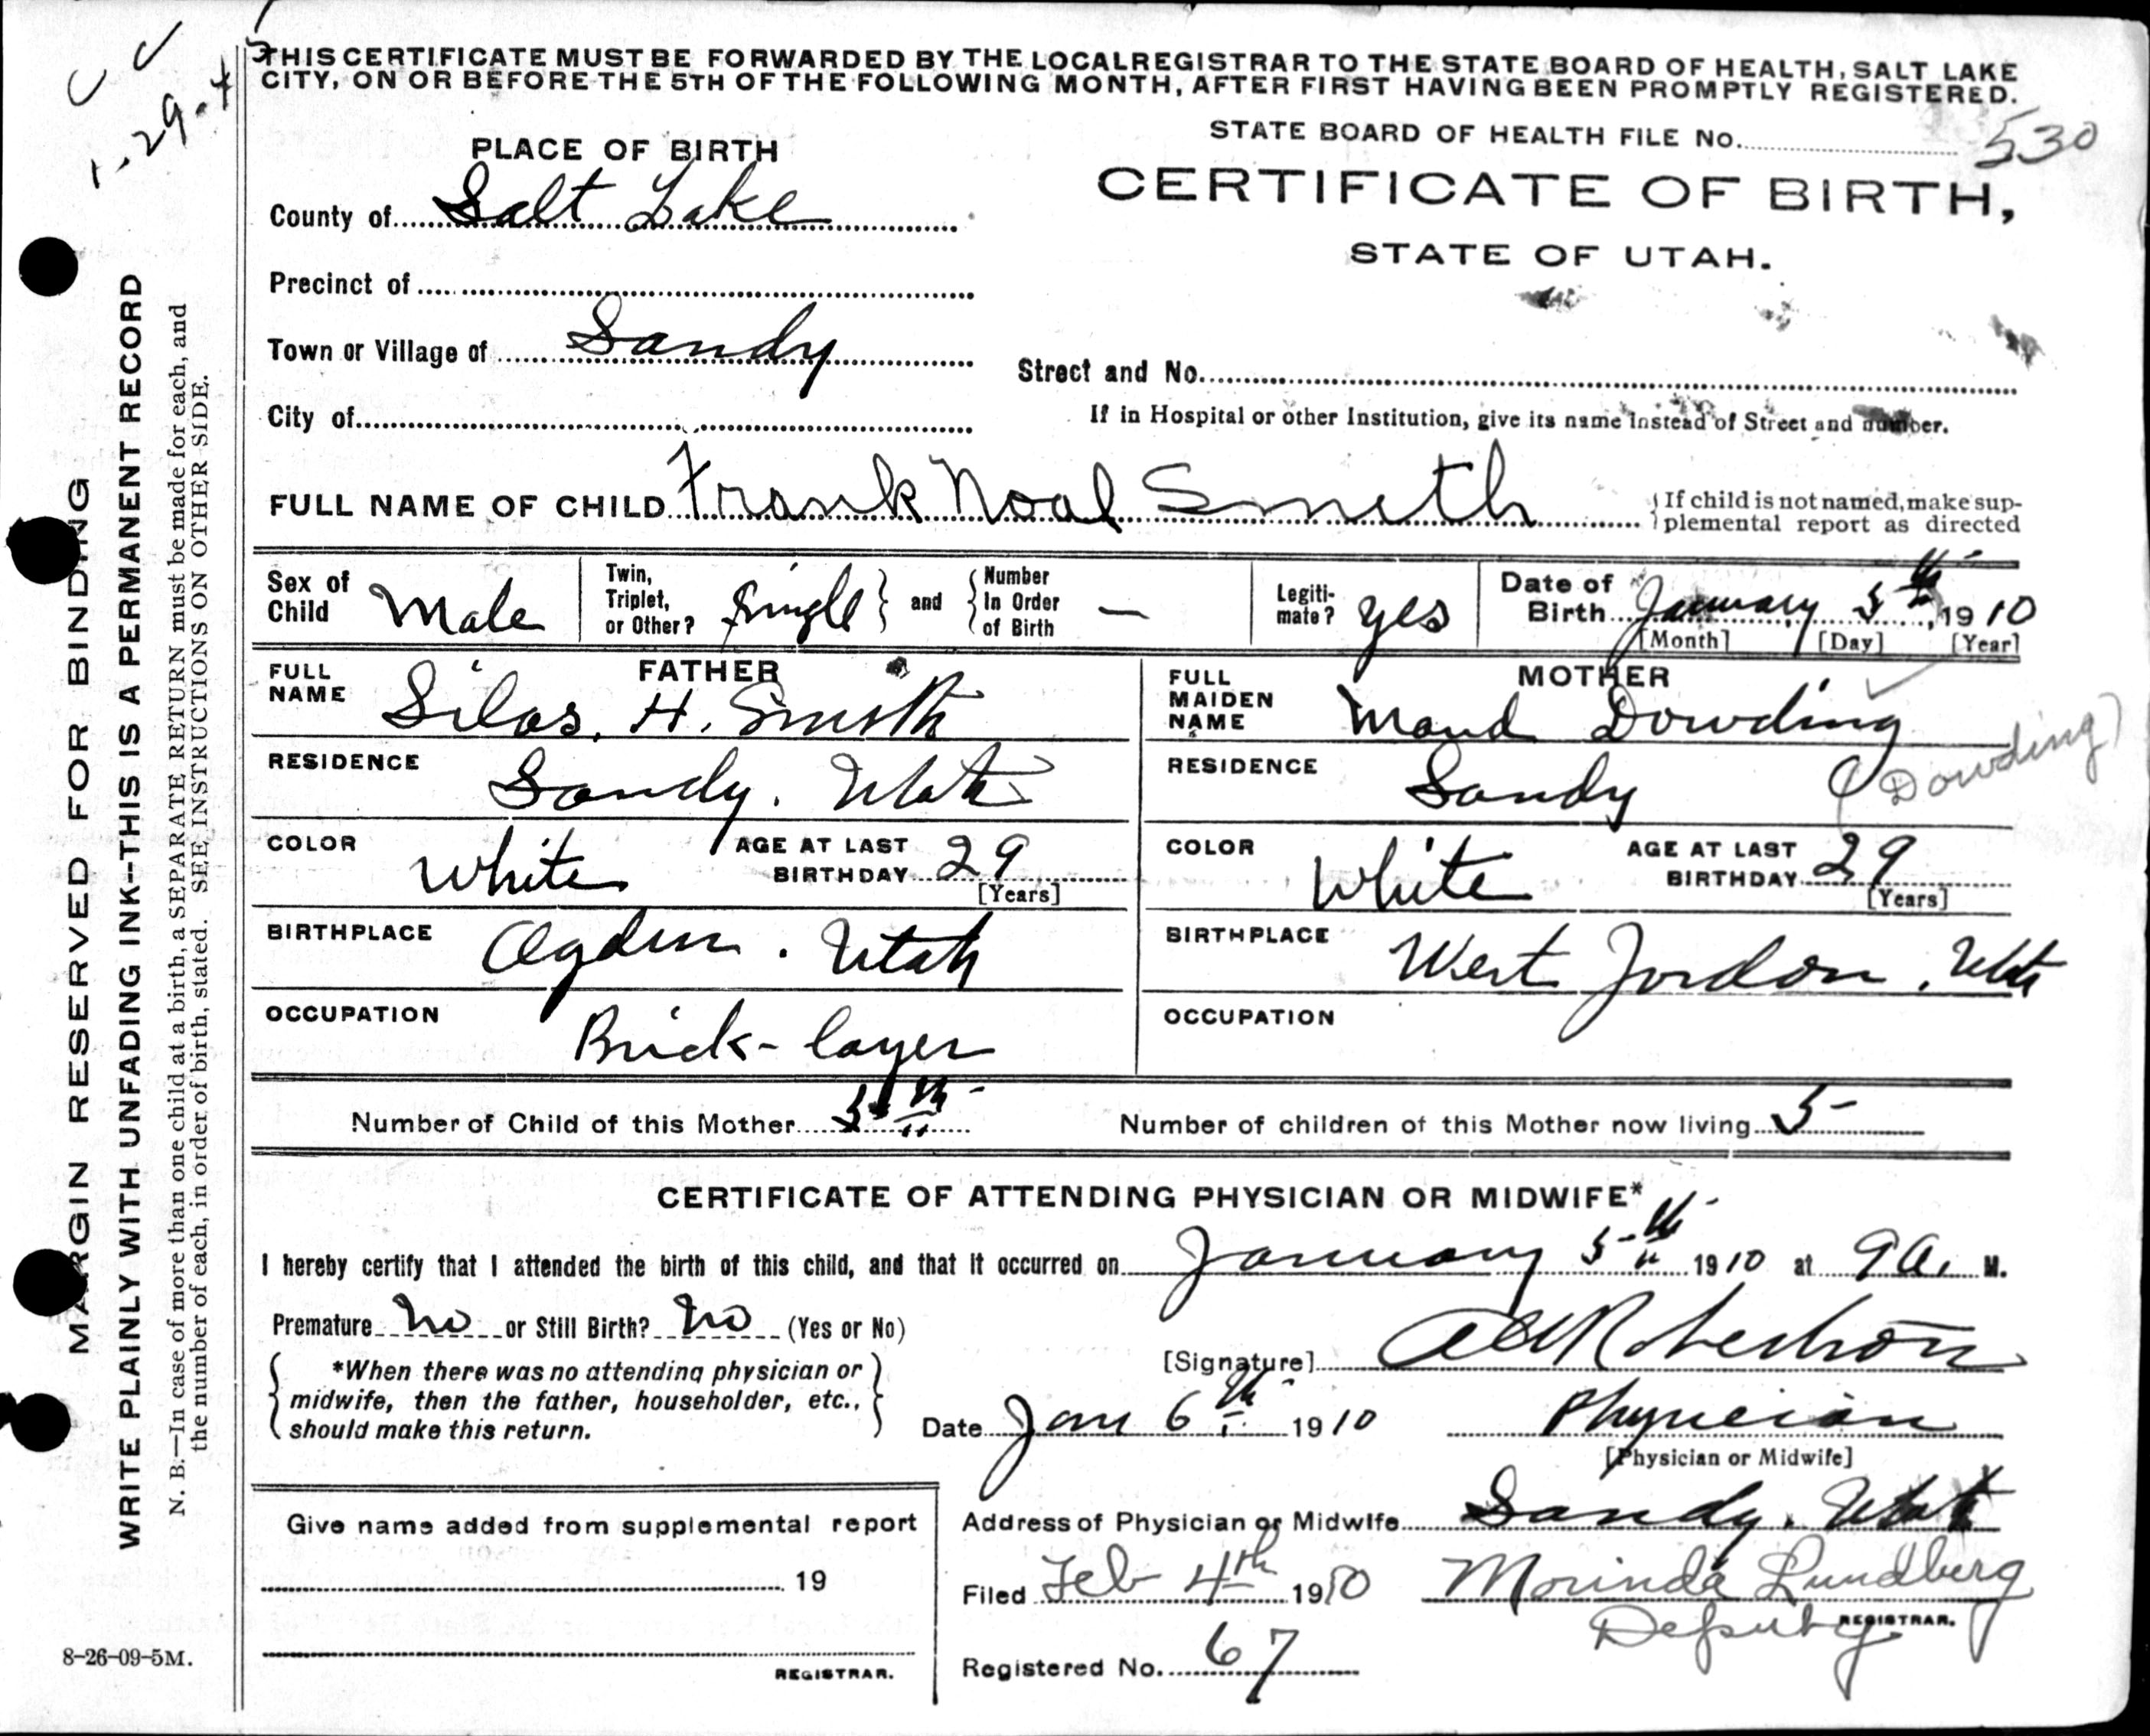 THIS CERTIFICATE MUST BE FORWARDED BY THE LOCALREGISTRAR TO THE STATE BOARD OF HEALTH, SALT LAKE
CITY, ON OR BEFORE THE 5TH OF THE FOLLOWING MONTH, AFTER FIRST HAVING BEEN PROMPTLY REGISTERED.
STATE BOARD OF HEALTH FILE No. 530
CERTIFICATE OF BIRTH,
STATE OF UTAH.
PLACE OF BIRTH
County of Salt Lake
Precinct of
Town or Village of Sandy
City of
Street and No.
If in Hospital or other Institution, give its name instead of Street and number.
FULL NAME OF CHILD Frank Noal Smith
If child is not named, make sup-
plemental report as directed
Sex of Child Male
Twin, Triplet, or Other? Single
and
Number In Order of Birth —
Legiti-mate? yes
Date of Birth January 5th 1910
[Month] [Day] [Year]
FATHER
FULL NAME Silas. H. Smith
RESIDENCE Sandy. Utah
COLOR White
AGE AT LAST BIRTHDAY 29
[Years]
BIRTHPLACE Ogden. Utah
OCCUPATION Brick-layer
MOTHER
FULL MAIDEN NAME Maud Dowding
(Dowding)
RESIDENCE Sandy
COLOR White
AGE AT LAST BIRTHDAY 29
[Years]
BIRTHPLACE West Jordon. Utah
OCCUPATION
Number of Child of this Mother 5th
Number of children of this Mother now living 5
CERTIFICATE OF ATTENDING PHYSICIAN OR MIDWIFE*
I hereby certify that I attended the birth of this child, and that it occurred on January 5th 1910 at 9 A. M.
Premature No or Still Birth? No (Yes or No)
*When there was no attending physician or
midwife, then the father, householder, etc.,
should make this return.
[Signature] Robertson
Date Jan 6th 1910
Physician
[Physician or Midwife]
Give name added from supplemental report
19
REGISTRAR.
Address of Physician or Midwife Sandy. Utah
Filed Feb 4th 1910
Morinda Lundberg
Deputy REGISTRAR.
Registered No. 67
MARGIN RESERVED FOR BINDING
WRITE PLAINLY WITH UNFADING INK--THIS IS A PERMANENT RECORD
N. B.—In case of more than one child at a birth, a SEPARATE RETURN must be made for each, and
the number of each, in order of birth, stated. SEE INSTRUCTIONS ON OTHER SIDE.
8-26-09-5M.